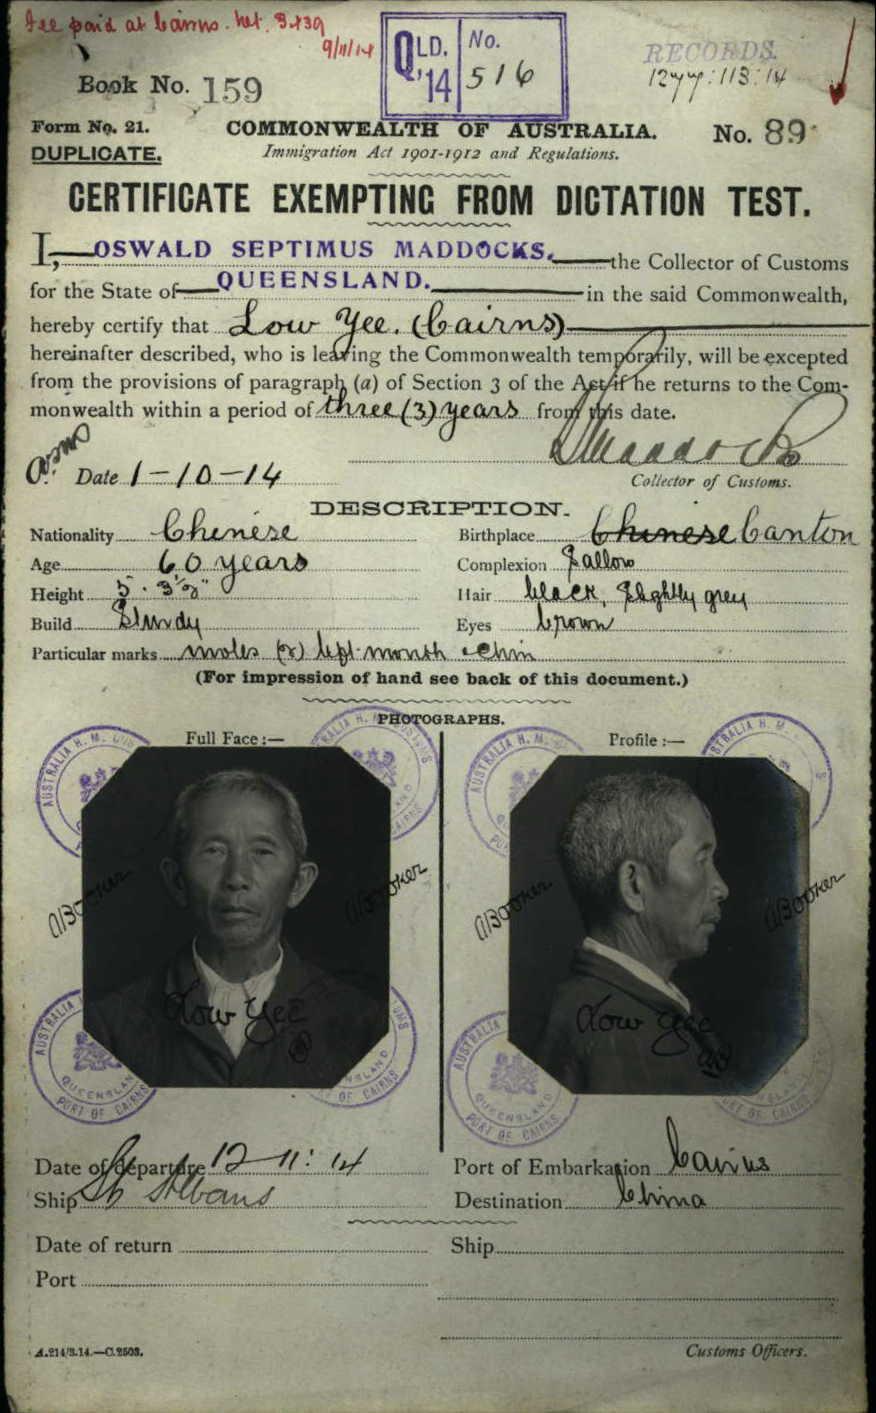 Fee paid at Cairns.
9/11/14
QLD. '14 No. 516
RECORDS.
Book No. 159
Form No. 21.
COMMONWEALTH OF AUSTRALIA.
No. 89
DUPLICATE.
Immigration Act 1901-1912 and Regulations.
CERTIFICATE EXEMPTING FROM DICTATION TEST.
I, OSWALD SEPTIMUS MADDOCKS, the Collector of Customs
for the State of QUEENSLAND. in the said Commonwealth,
hereby certify that Low Yee. (Cairns)
hereinafter described, who is leaving the Commonwealth temporarily, will be excepted
from the provisions of paragraph (a) of Section 3 of the Act if he returns to the Com-
monwealth within a period of three (3) years from this date.
Maddocks
Date 1-10-14
Collector of Customs.
DESCRIPTION.
Nationality Chinese
Birthplace Chinese Canton
Age 60 years
Complexion Sallow
Height 5' 3½"
Hair black, slightly grey
Build Sturdy
Eyes brown
Particular marks moles (2) left mouth & chin
(For impression of hand see back of this document.)
PHOTOGRAPHS.
Full Face :—
Profile :—
ABooker
ABooker
ABooker
ABooker
Low Yee
Low Yee
AUSTRALIA H. M. CUSTOMS
QUEENSLAND
PORT OF CAIRNS
Date of departure 12-11-14
Port of Embarkation Cairns
Ship St Albans
Destination China
Date of return
Ship
Port
A.214/3.14.—C.2503.
Customs Officers.